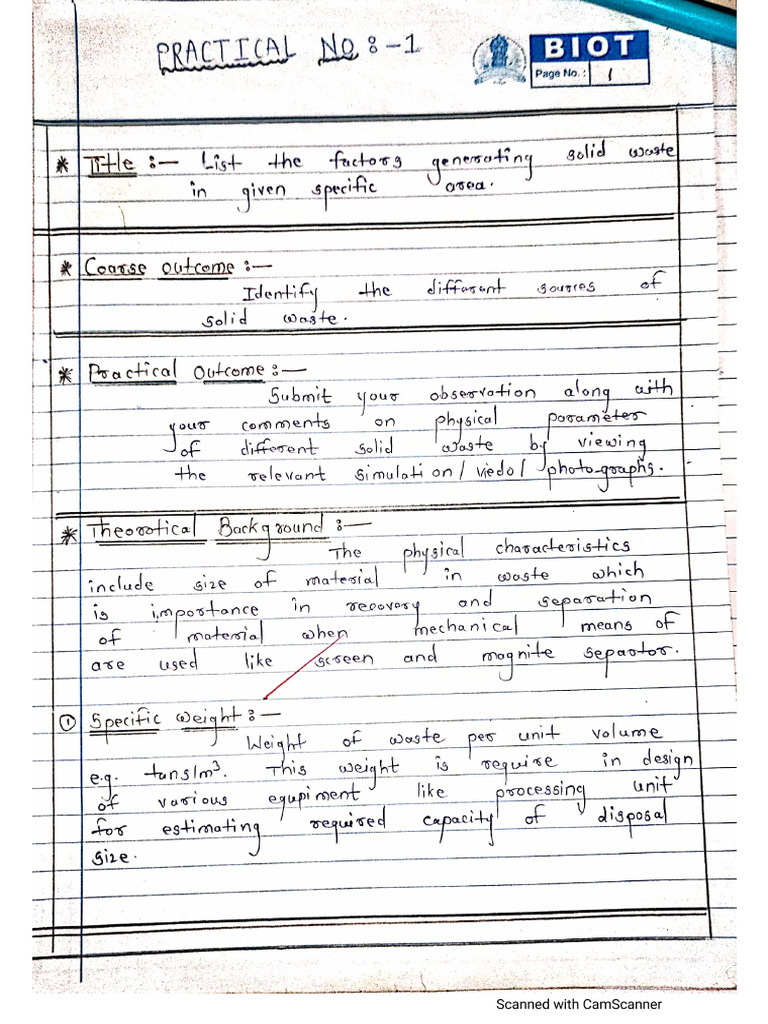 PRACTICAL NO :- 1
BIOT
Page No. : 1
* Title :- List the factors generating solid waste
in given specific area.
* Coarse outcome :-
Identify the different sources of
solid waste.
* Practical Outcome :-
Submit your observation along with
your comments on physical parameter
of different solid waste by viewing
the relevant simulation/viedo/photographs.
* Theorotical Background :-
The physical characteristics
include size of material in waste which
is importance in recovery and separation
of material when mechanical means of
are used like screen and magnite separtor.
① Specific weight :-
Weight of waste per unit volume
e.g. tans/m³. This weight is require in design
of various equpiment like processing unit
for estimating required capacity of disposal
size.
Scanned with CamScanner